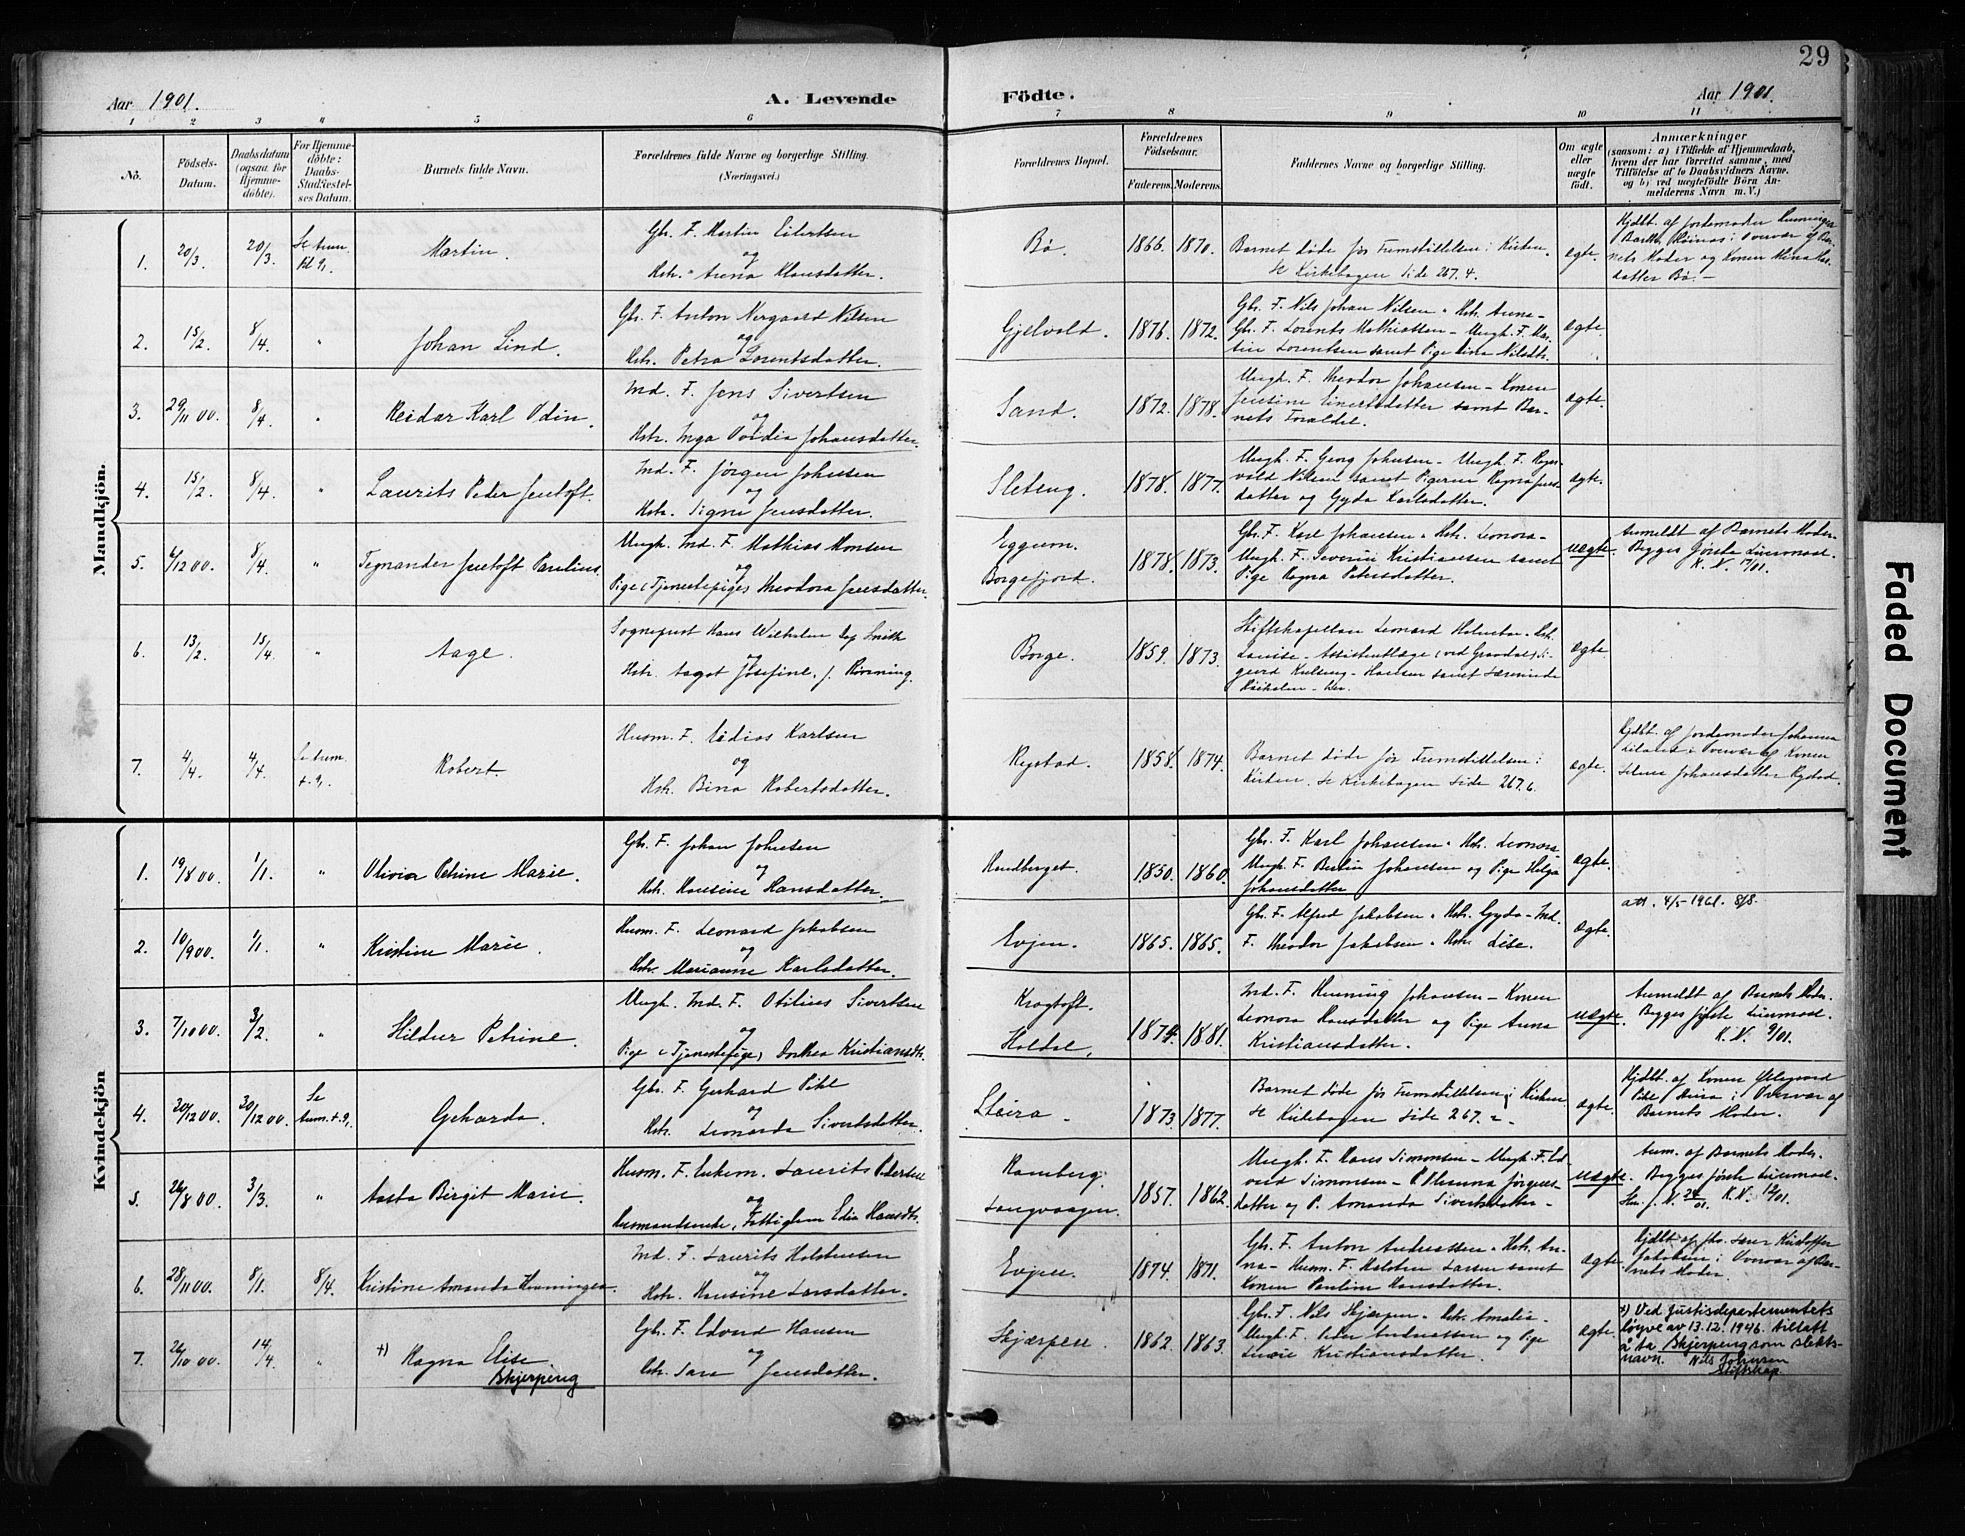 29
Aar 1901.
A. Levende
Födte.
Aar 1901.
1 2 3 4 5 6 7 8 9 10 11
No.
Födsels-
Datum.
Daabsdatum
(ogsaa for
Hjemme-
döbte).
For Hjemme-
döbte:
Daabs-
Stadfæstel-
ses Datum.
Barnets fulde Navn.
Forældrenes fulde Navne og borgerlige Stilling.
(Næringsvei.)
Forældrenes Bopæl.
Forældrenes
Födselsaar.
Faderens. Moderens.
Faddernes Navne og borgerlige Stilling.
Om ægte
eller
uægte
födt.
Anmærkninger
(saasom: a) i Tilfælde af Hjemmedaab,
hvem der har forrettet samme, med
Tilföielse af to Daabsvidners Navne.
og b) ved uægtefödte Börn An-
melderens Navn m. V.)
Mandkjön.
1. 20/3. 20/3. Se Anm.
Martin.
Gbr. F. Martin Eilertsen
og
Hstr. Anna Klausdatter.
Bø. 1866. 1870.
Barnet døde før Fremstillelsen i Kirken.
Se Kirkebogen Side 267.4.
ægte.
Hjdbt. af Jordemoder
i Overvær af Bar-
nets Moder og Konen
datter Bø. -
2. 15/2. 8/4. "
Johan Lind.
Gbr. F. Anton Norgaard Nilsen
og
Hstr. Petra Lorentsdatter.
Gjelvold. 1876. 1872.
Gbr. F. Nils Johan Nilsen - Hstr. Anna -
Gbr. F. Lorents Mathiassen - Ungk. F. Mar-
tin Lorentsen samt Pige Lina Nilsdtr.
ægte.
3. 29/11 00. 8/4. "
Reidar Karl Odin.
Ind. F. Jens Sivertsen
og
Hstr. Inga Johansdatter.
Sand. 1872. 1878.
Ungk. F. Theodor Johansen - Konen
Jensine Einertsdatter samt Bar-
nets Forældre.
ægte.
4. 15/2. 8/4. "
Laurits Peder Jentoft.
Ind. F. Jørgen Johnsen
og
Hstr. Signe Jensdatter.
Sleteng. 1878. 1877.
Ungk. F. Georg Johnsen - Ungk. F. Ragn-
vald Nilsen samt Pigerne Ragna Jens-
datter og Gyda Karlsdatter.
ægte.
5. 6/12 00. 8/4. "
Tegnander Jentoft Paulius.
Ungk. Ind. F. Mathias Monsen
og
Pige (Tjenestepige) Theodora Jensdatter.
Eggum.
Borgefjord. 1878. 1873.
Gbr. F. Karl Johansen - Hstr. Leonora -
Ungk. F. Severin Kristiansen samt
Pige Ragna Petersdatter.
uægte.
Anmeldt af Barnets Moder.
Begges første Leiermaal.
K. N. /01.
6. 13/2. 15/4. "
Aage.
Sogneprest Hans Wilhelm Smith
og
Hstr. Aagot Josefine, f. Rønning.
Borge. 1859. 1873.
Stiftskapellan Leonard Holmboe - Hstr.
Louise - Assistentlæge (ved Gravdal) Si-
gurd Hansen samt Lærerinde
ægte.
7. 4/4. 4/4. Se Anm.
Robert.
Husm. F. Edias Karlsen
og
Hstr. Bina Robertsdatter.
Rystad. 1858. 1874.
Barnet døde før Fremstillelsen i
Kirken. Se Kirkebogen Side 267.6.
ægte.
Hjdbt. af Jordemoder Johanna
i Overvær af Konen
Selma Johansdatter Rystad.
Kvindekjön
1. 19/8 00. 1/1. "
Olivia Petrine Marie.
Gbr. F. Johan Johnsen
og
Hstr. Hansine Hansdatter.
Hundberget. 1850. 1860.
Gbr. F. Karl Johansen - Hstr. Leonora
Ungk. F. Berlin Johansen og Pige Helga
Johansdatter
ægte.
2. 10/9 00. 1/1. "
Kristine Marie.
Husm. F. Leonard Jakobsen
og
Hstr. Marianne Karlsdatter.
Evjen. 1865. 1865.
Gbr. F. Alfred Jakobsen - Hstr. Gyda - Ind.
F. Theodor Jakobsen - Hstr. Lise.
ægte.
att. 4/5-1961.
3. 7/10 00. 3/2. "
Hildur Petrine.
Ungk. Ind. F. Otilius Sivertsen
og
Pige (Tjenestepige) Dorthea Kristiansdtr.
Krogtoft.
Holdal. 1879. 1881.
Ind. F. Henning Johansen - Konen
Leonora Hansdatter og Pige Anna
Kristiansdatter.
uægte.
Anmeldt af Barnets Moder.
Begges første Leiermaal.
K. N. 9/01.
4. 20/12 00. 30/12 00. Se
Anm.
Geharda.
Gbr. F. Gerhard Pihl
og
Hstr. Leonarda Sivertsdatter.
Steira - 1873. 1877.
Barnet døde før Fremstillelsen i Kirken
Se Kirkebogen Side 267.2
ægte.
Hjdbt. af Konen
Pihl Steira i Overvær af
Barnets Moder.
5. 26/8 00. 3/3. "
Aasta Birgit Marie.
Husm. F. Enkem. Laurits Pedersen
og
Husmandsenke, Fattiglem Edia Hansdtr.
Ramberg.
Langvaagen. 1857. 1862.
Ungk. F. Hans Simonsen - Ungk. F. Ed-
vard Simonsen - P. Eleanora Jørgens-
datter og P. Amanda Sivertsdatter -
uægte.
Anm. af Barnets Moder.
Begges første Leiermaal.
K. N. 12/01.
6. 28/11 00. 8/1. 8/4.
Kristine Amanda Henningea.
Ind. F. Laurits Holstensen
og
Hstr. Hansine Larsdatter.
Evjen. 1874. 1871.
Gbr. F. Anton Andreassen - Hstr. An-
na - Husm. F. Holsten Larsen samt
Konen Pauline Hansdatter.
ægte.
Hjdbt. af Kristoffer
Jakobsen i Overvær af Bar-
nets Moder.
7. 26/10 00. 14/4. "
+) Ragna Elise.
Skjerpeng
Gbr. F. Edvard Hansen
og
Hstr. Sara Jensdatter.
Skjærpen. 1862. 1863.
Gbr. F. Nils Skjærpen - Hstr. Amalia -
Ungk. F. Peder Andreassen og Pige
Lucie Kristiansdatter.
ægte.
+) Ved Justisdepartementets
løyve av 13.12.1946 tillatt
å ta Skjerpeng som slekts-
navn. Nils Johnsen
stiftskap.
Faded Document